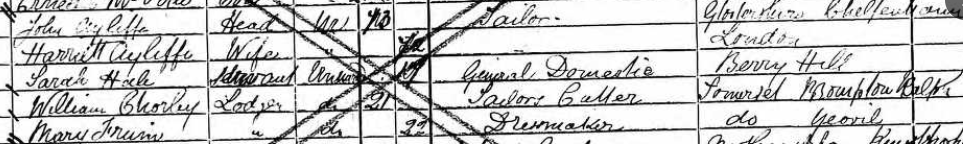 John Ayliffe Head Mar 73 Tailor Glostershire Cheltenham
Harriett Ayliffe Wife " 72 London
Sarah Hale Servant Unmar 19 General Domestic Berry Hill
William Chorley Lodger do 21 Tailors Cutter Somerset Brompton Ralph
Mary " do 22 Dressmaker do Yeovil